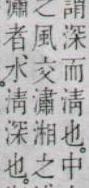 謂深而淸也中
之風交瀟湘之
瀟者水淸深也